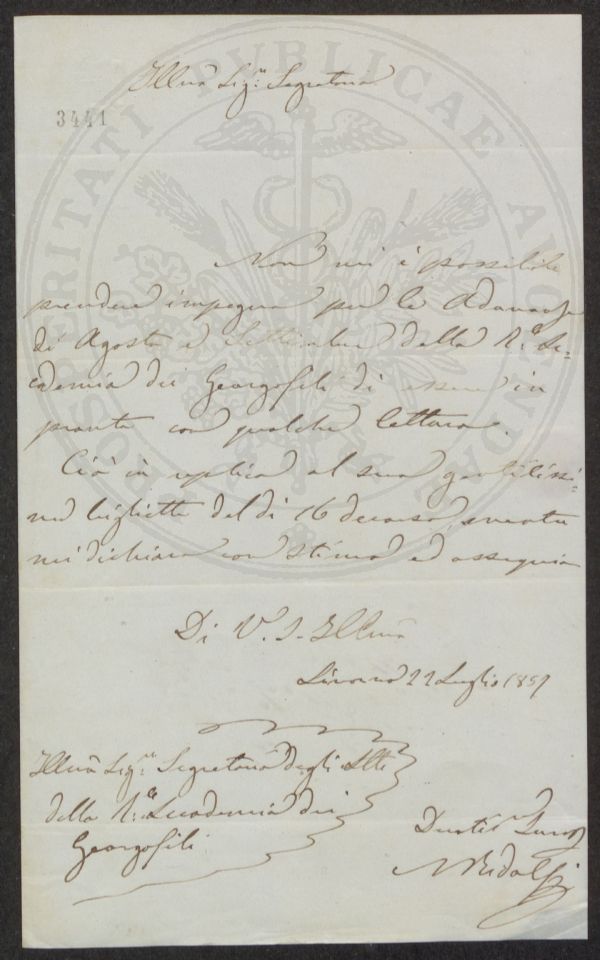 Illmo Sig.r Segretario
3441
Non mi è possibile
prendere impegno per le Adunanze
di Agosto e Settembre della R.e Ac-
cademia dei Georgofili di essere in
pronto con qualche lettura.
Ciò in replica al suo gentilissi-
mo biglietto del dì 16 decorso, mentre
mi dichiaro con stima ed ossequio
Di V. S. Illma
Livorno 22 Luglio 1857
Illmo Sig.r Segretario degli Atti
della R.e Accademia dei
Georgofili
Devotis.o Servo
Ridolfi
PROSPERITATI PUBLICAE AUGENDAE